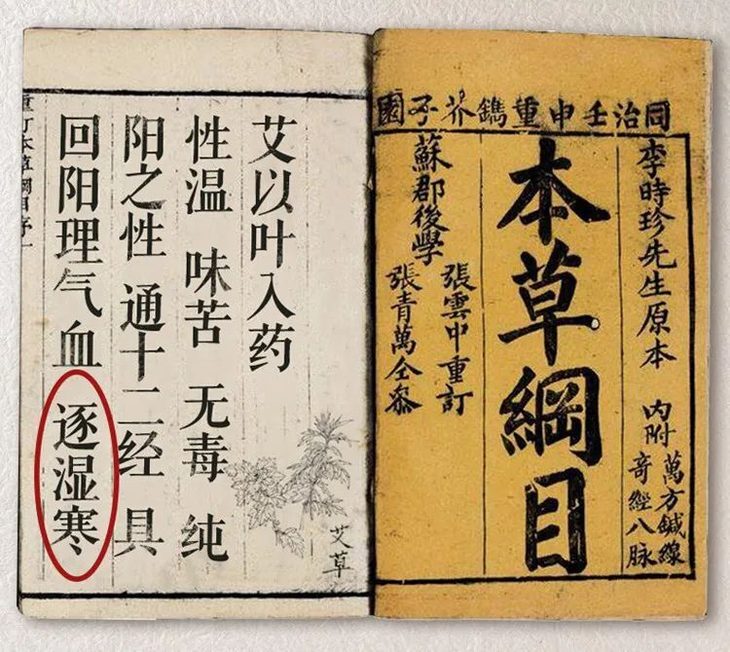 同治壬申重鐫芥子園
李時珍先生原本 内附
萬方鍼線
奇經八脉
本草綱目
蘇郡後學
張雲中重訂
張青萬仝參
艾以叶入药
性温 味苦 无毒 纯
阳之性 通十二经 具
回阳理气血 逐湿寒
艾草